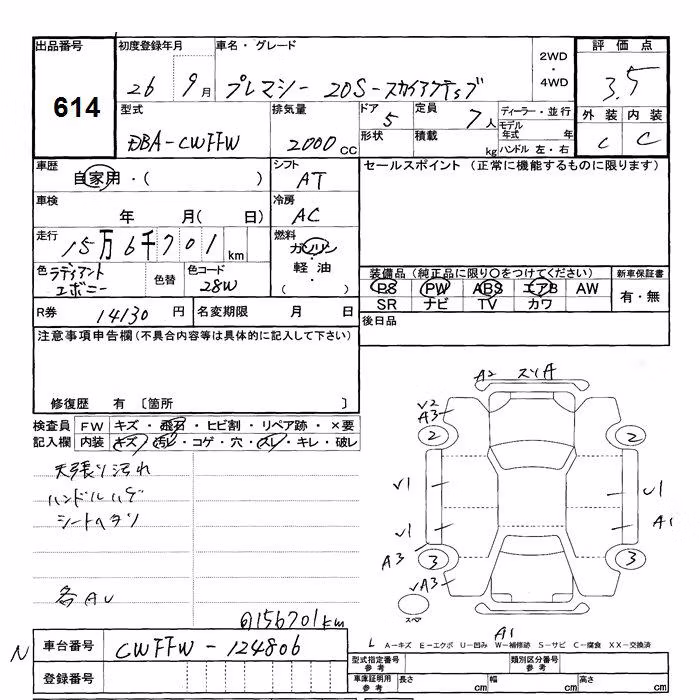 出品番号 初度登録年月 車名・グレード 2WD・4WD 評価点
614 26 9月 プレマシー 20S-スカイアクティブ 3.5
型式 排気量 ドア 5 定員 7人 ディーラー・並行 外装 内装
DBA-CWFFW 2000cc 形状 積載 kg モデル年式 年 ハンドル 左・右 C C
車歴 自家用・( ) シフト AT セールスポイント (正常に機能するものに限ります)
車検 年 月( 日) 冷房 AC
走行 15万6千701km 燃料 ガソリン・軽油・( )
色 ラディアントエボニー 色替 色コード 28W 装備品(純正品に限り○をつけてください) 新車保証書
PS PW ABS エアB AW 有・無
SR ナビ TV カワ
R券 14130円 名変期限 月 日 後日品
注意事項申告欄(不具合内容等は具体的に記入して下さい)
修復歴 有 〔箇所 〕
検査員 FW キズ・飛石・ヒビ割・リペア跡・×要
記入欄 内装 キズ・汚レ・コゲ・穴・スレ・キレ・破レ
天張り汚れ
ハンドルハゲ
シートヘタリ
各AU
156701km
A2 スリA
V2
A3
2 2
V1 U1
V1 A1
A3 3 3
VA3
スペア
A1
L A-キズ E-エクボ U-凹み W-補修跡 S-サビ C-腐食 XX-交換済
N 車台番号 CWFFW-124806 型式指定番号 参考 類別区分番号 参考
登録番号 車庫証明用 参考 長さ cm 幅 cm 高さ cm